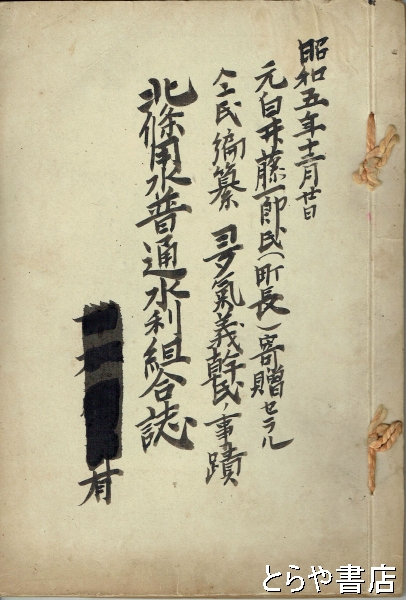 昭和五年十二月廿日
元臼井藤一郎氏(町長)寄贈セラル
仝氏編纂 多氣義幹氏ノ事蹟
北條用水普通水利組合誌
有
とらや書店